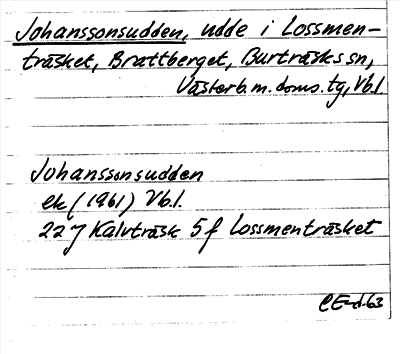 Johanssonsudden, udde i Lossmen-
träsket, Brattberget, Burträsks sn,
Västerb. m. doms. tg, Vb.l.
Johanssonsudden
ek (1961) Vb.l.
22J Kalvträsk 5f Lossmenträsket